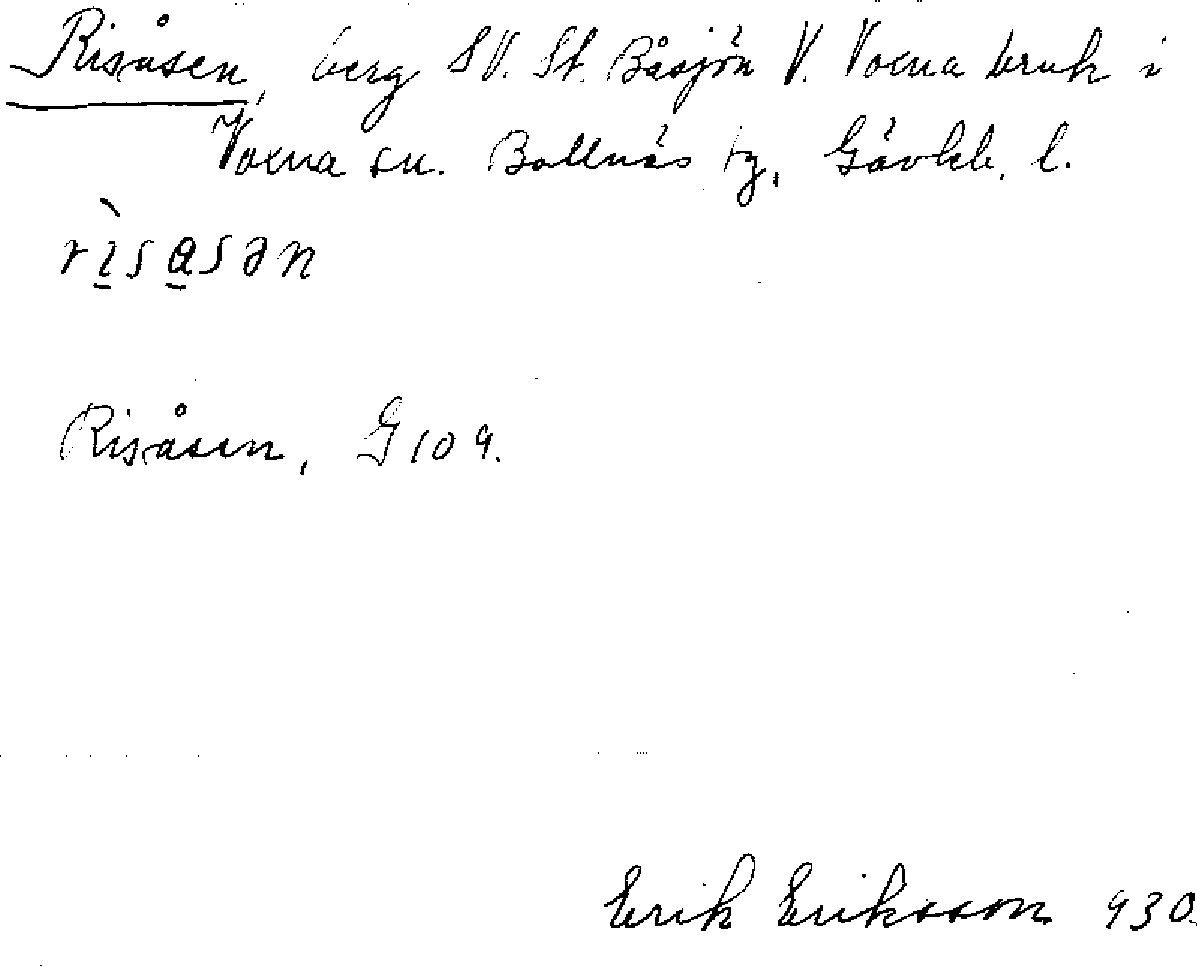 Risåsen, berg SV. St. Båsjön V. Voxna bruk i
Voxna sn. Bollnäs tg, Gävleb. l.
rìsasən
Risåsen, G 109.
Erik Eriksson 930.